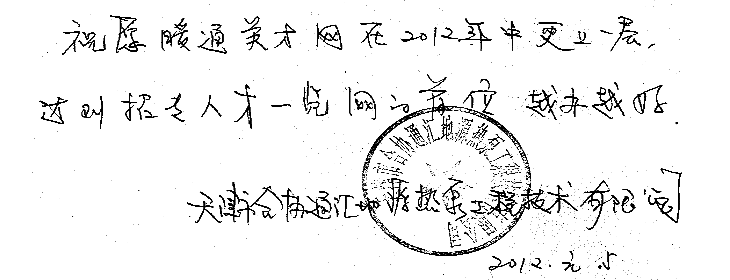 祝愿暖通英才网在2012年中更上一层，
达到招专人才一览网的首位 越来越好.
天津市合协通汇地源热泵工程技术有限公司
2012.元.5